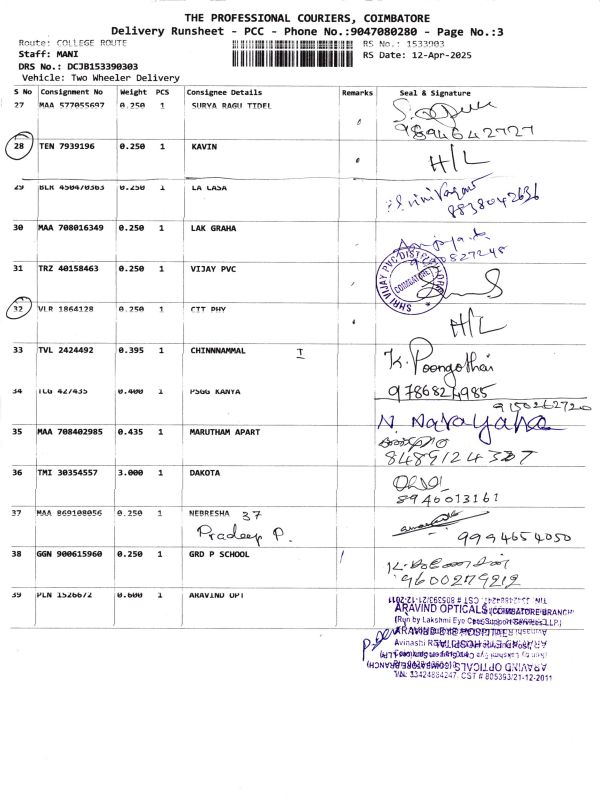 THE PROFESSIONAL COURIERS, COIMBATORE
Delivery Runsheet - PCC - Phone No.:9047080280 - Page No.:3
Route: COLLEGE ROUTE RS No.: 1533903
Staff: MANI RS Date: 12-Apr-2025
DRS No.: DCJB153390303
Vehicle: Two Wheeler Delivery
S No Consignment No Weight PCS Consignee Details Remarks Seal & Signature
27 MAA 577055697 0.250 1 SURYA RAGU TIDEL
9894642727
28 TEN 7939196 0.250 1 KAVIN H/L
29 BLR 450470363 0.250 1 LA CASA
8838042636
30 MAA 708016349 0.250 1 LAK GRAHA
31 TRZ 40158463 0.250 1 VIJAY PVC
SHRI VIJAY PVC DISTRIBUTORS
COIMBATORE
32 VLR 1864128 0.250 1 CIT PHY H/L
33 TVL 2424492 0.395 1 CHINNNAMMAL T K. Poongothai
9786824985
34 TCG 427435 0.400 1 PSGG KANYA 9150262720
35 MAA 708402985 0.435 1 MARUTHAM APART N. Narayana
8489124337
36 TMI 30354557 3.000 1 DAKOTA
8940013161
37 MAA 869108056 0.250 1 NEBRESHA 37
Pradeep P. 9994654050
38 GGN 900615960 0.250 1 GRD P SCHOOL
9600279212
39 PLN 1526672 0.600 1 ARAVIND OPT
ARAVIND OPTICALS (COIMBATORE BRANCH)
(Run by Lakshmi Eye Care Support Services LLP.)
ARAVIND EYE HOSPITAL
Avinashi Road
TIN: 33424884247. CST # 805393/21-12-2011